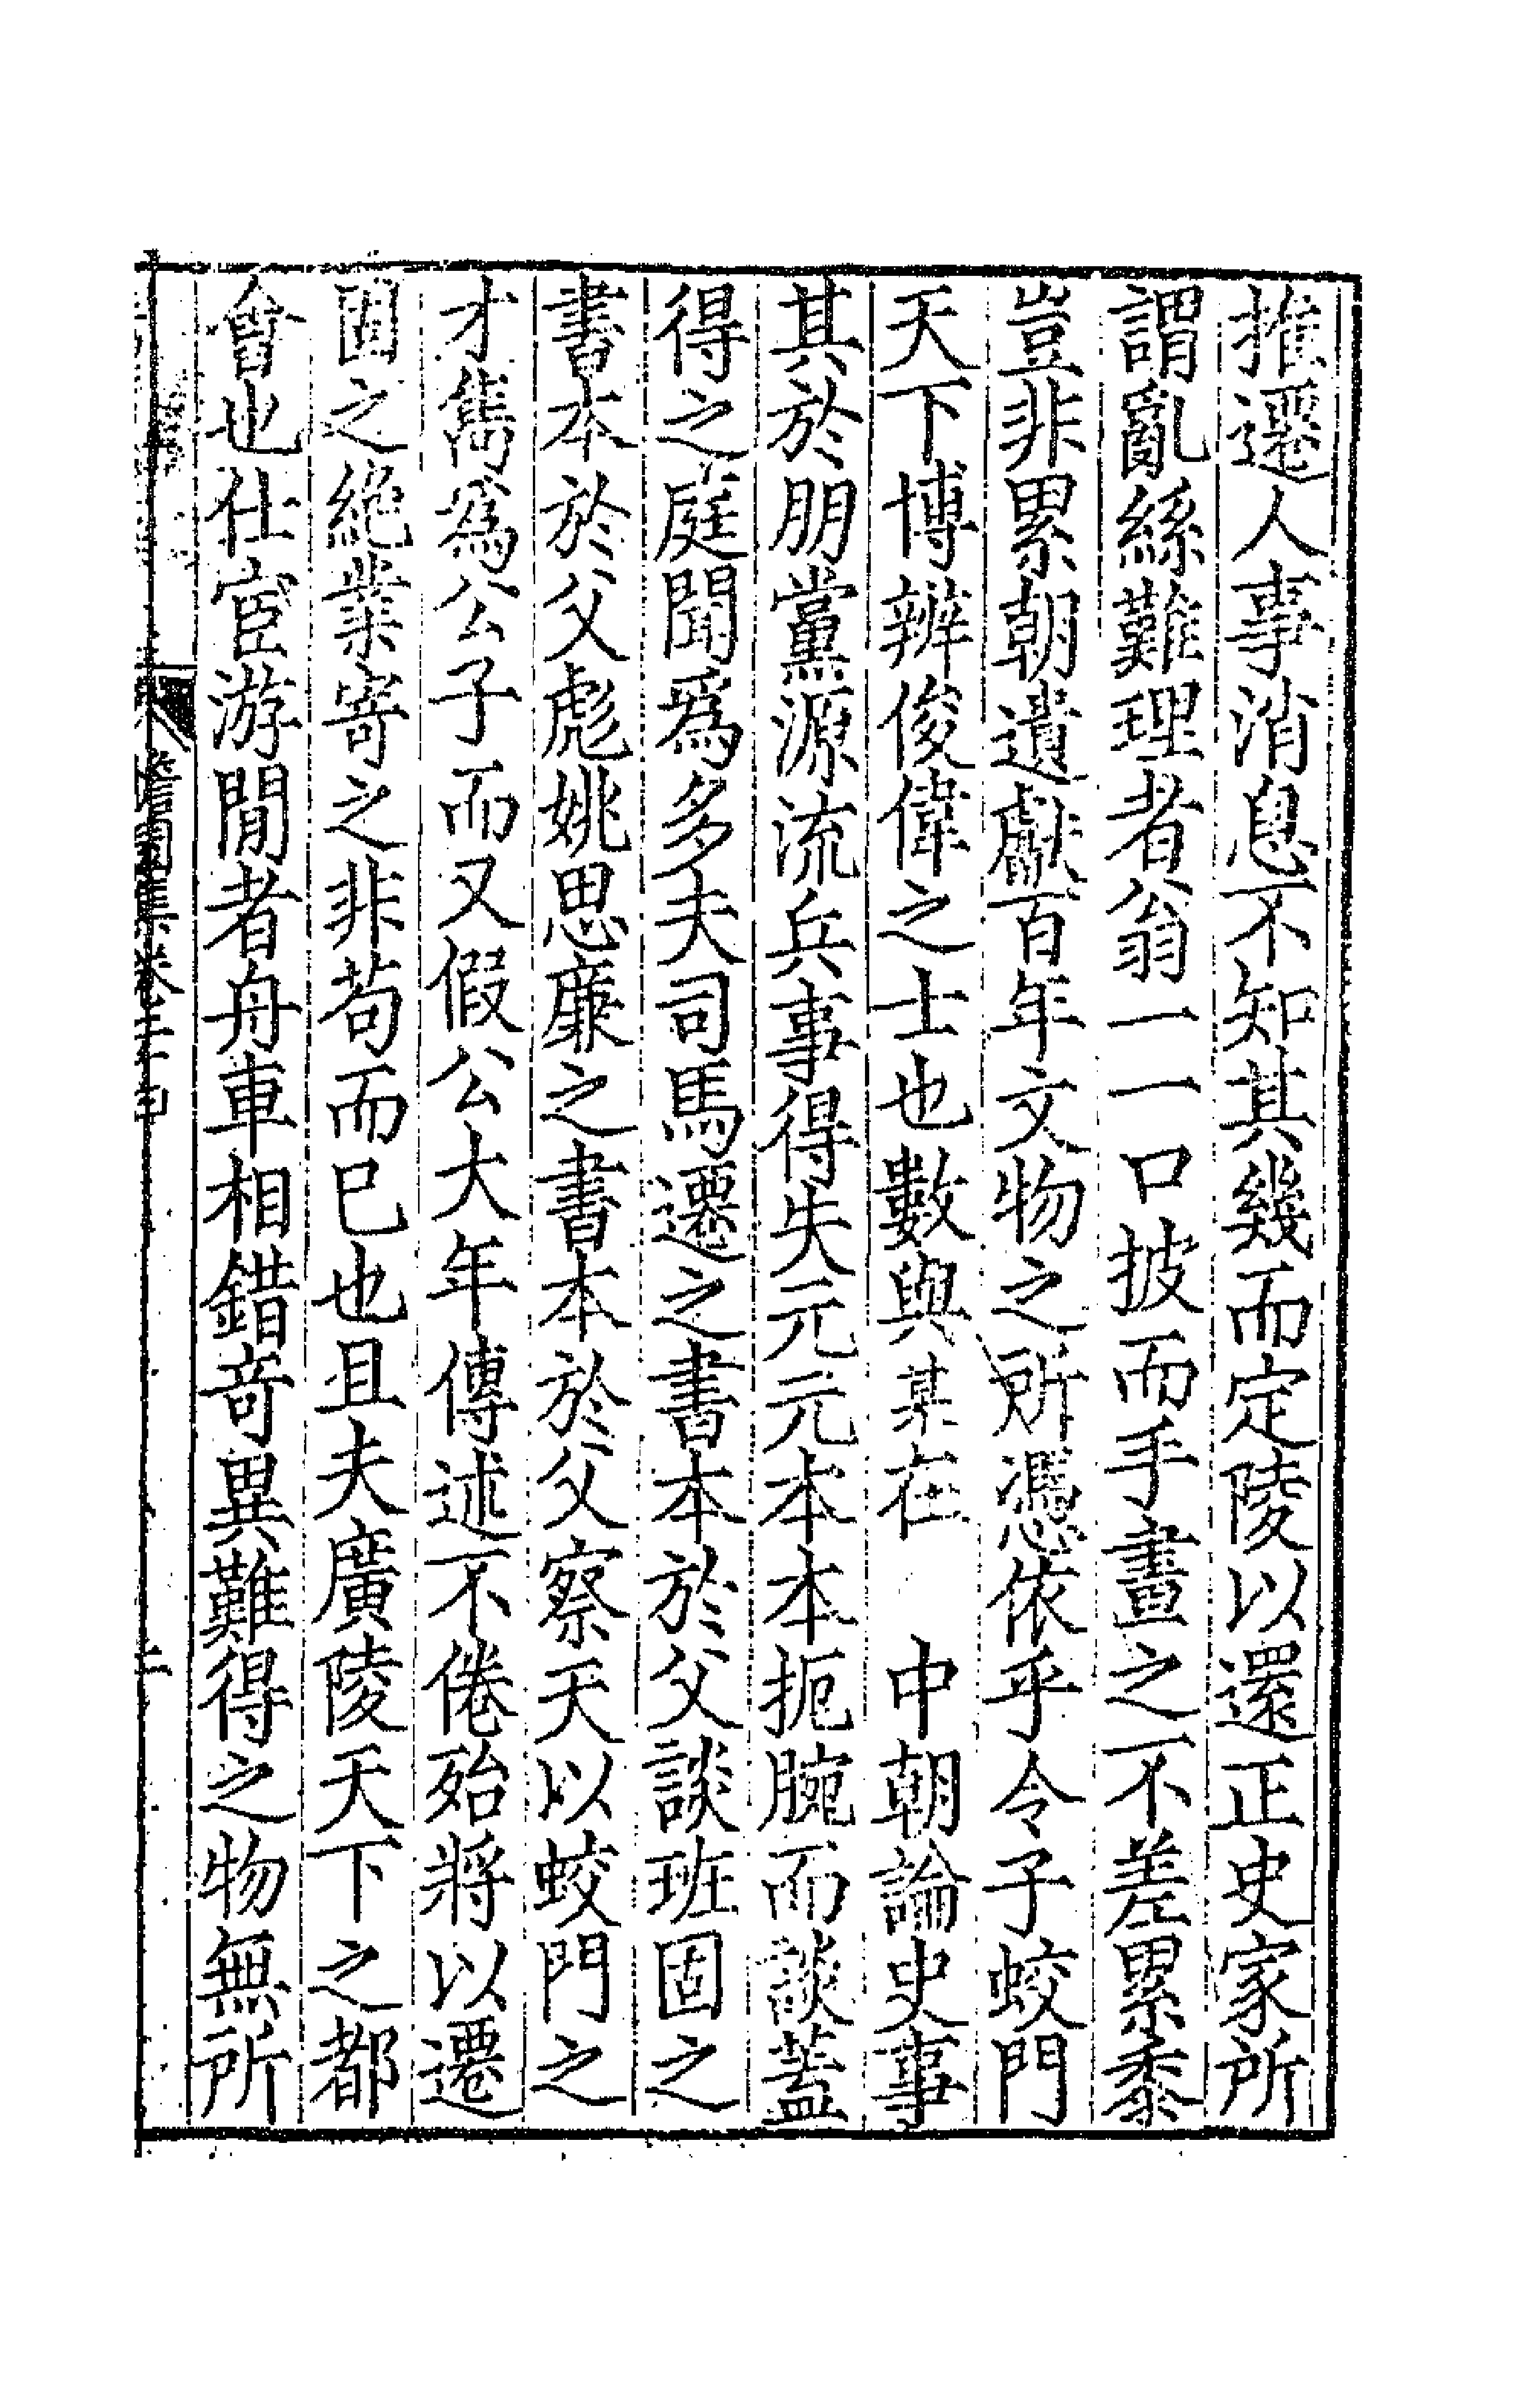 推遷人事消息不知其幾而定陵以還正史家所
謂亂絲難理者翁一一口披而手畫之不差累黍
豈非累朝遺獻百年文物之所憑依乎令子蛟門
天下博辨俊偉之士也數與某在　中朝論史事
其於朋黨源流兵事得失元元本本扼腕而談蓋
得之庭聞爲多夫司馬遷之書本於父談班固之
書本於父彪姚思廉之書本於父察天以蛟門之
才雋爲公子而又假公大年傳述不倦殆將以遷
固之絶業寄之非苟而已也且夫廣陵天下之都
會也仕宦游閒者舟車相錯奇異難得之物無所
集卷二十四